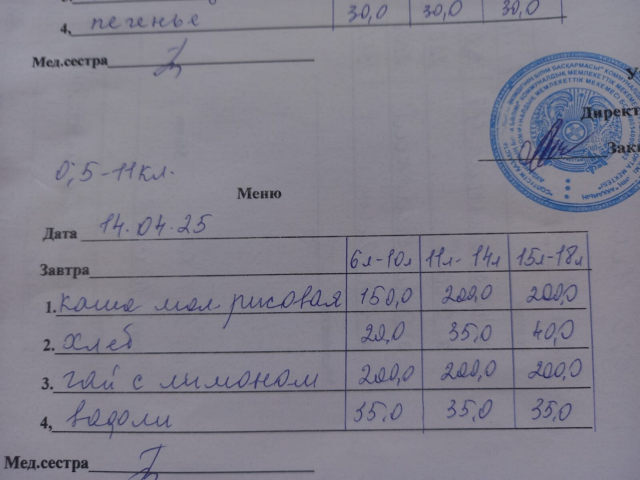 4, печенье 30,0 30,0 30,0
Мед.сестра
Директ
Зак
0,5-11кл.
Меню
Дата 14.04.25
Завтра 6л-10л 11л-14л 15л-18л
1. каша мол рисовая 150,0 200,0 200,0
2. хлеб 20,0 35,0 40,0
3. чай с лимоном 200,0 200,0 200,0
4, вафли 35,0 35,0 35,0
Мед.сестра